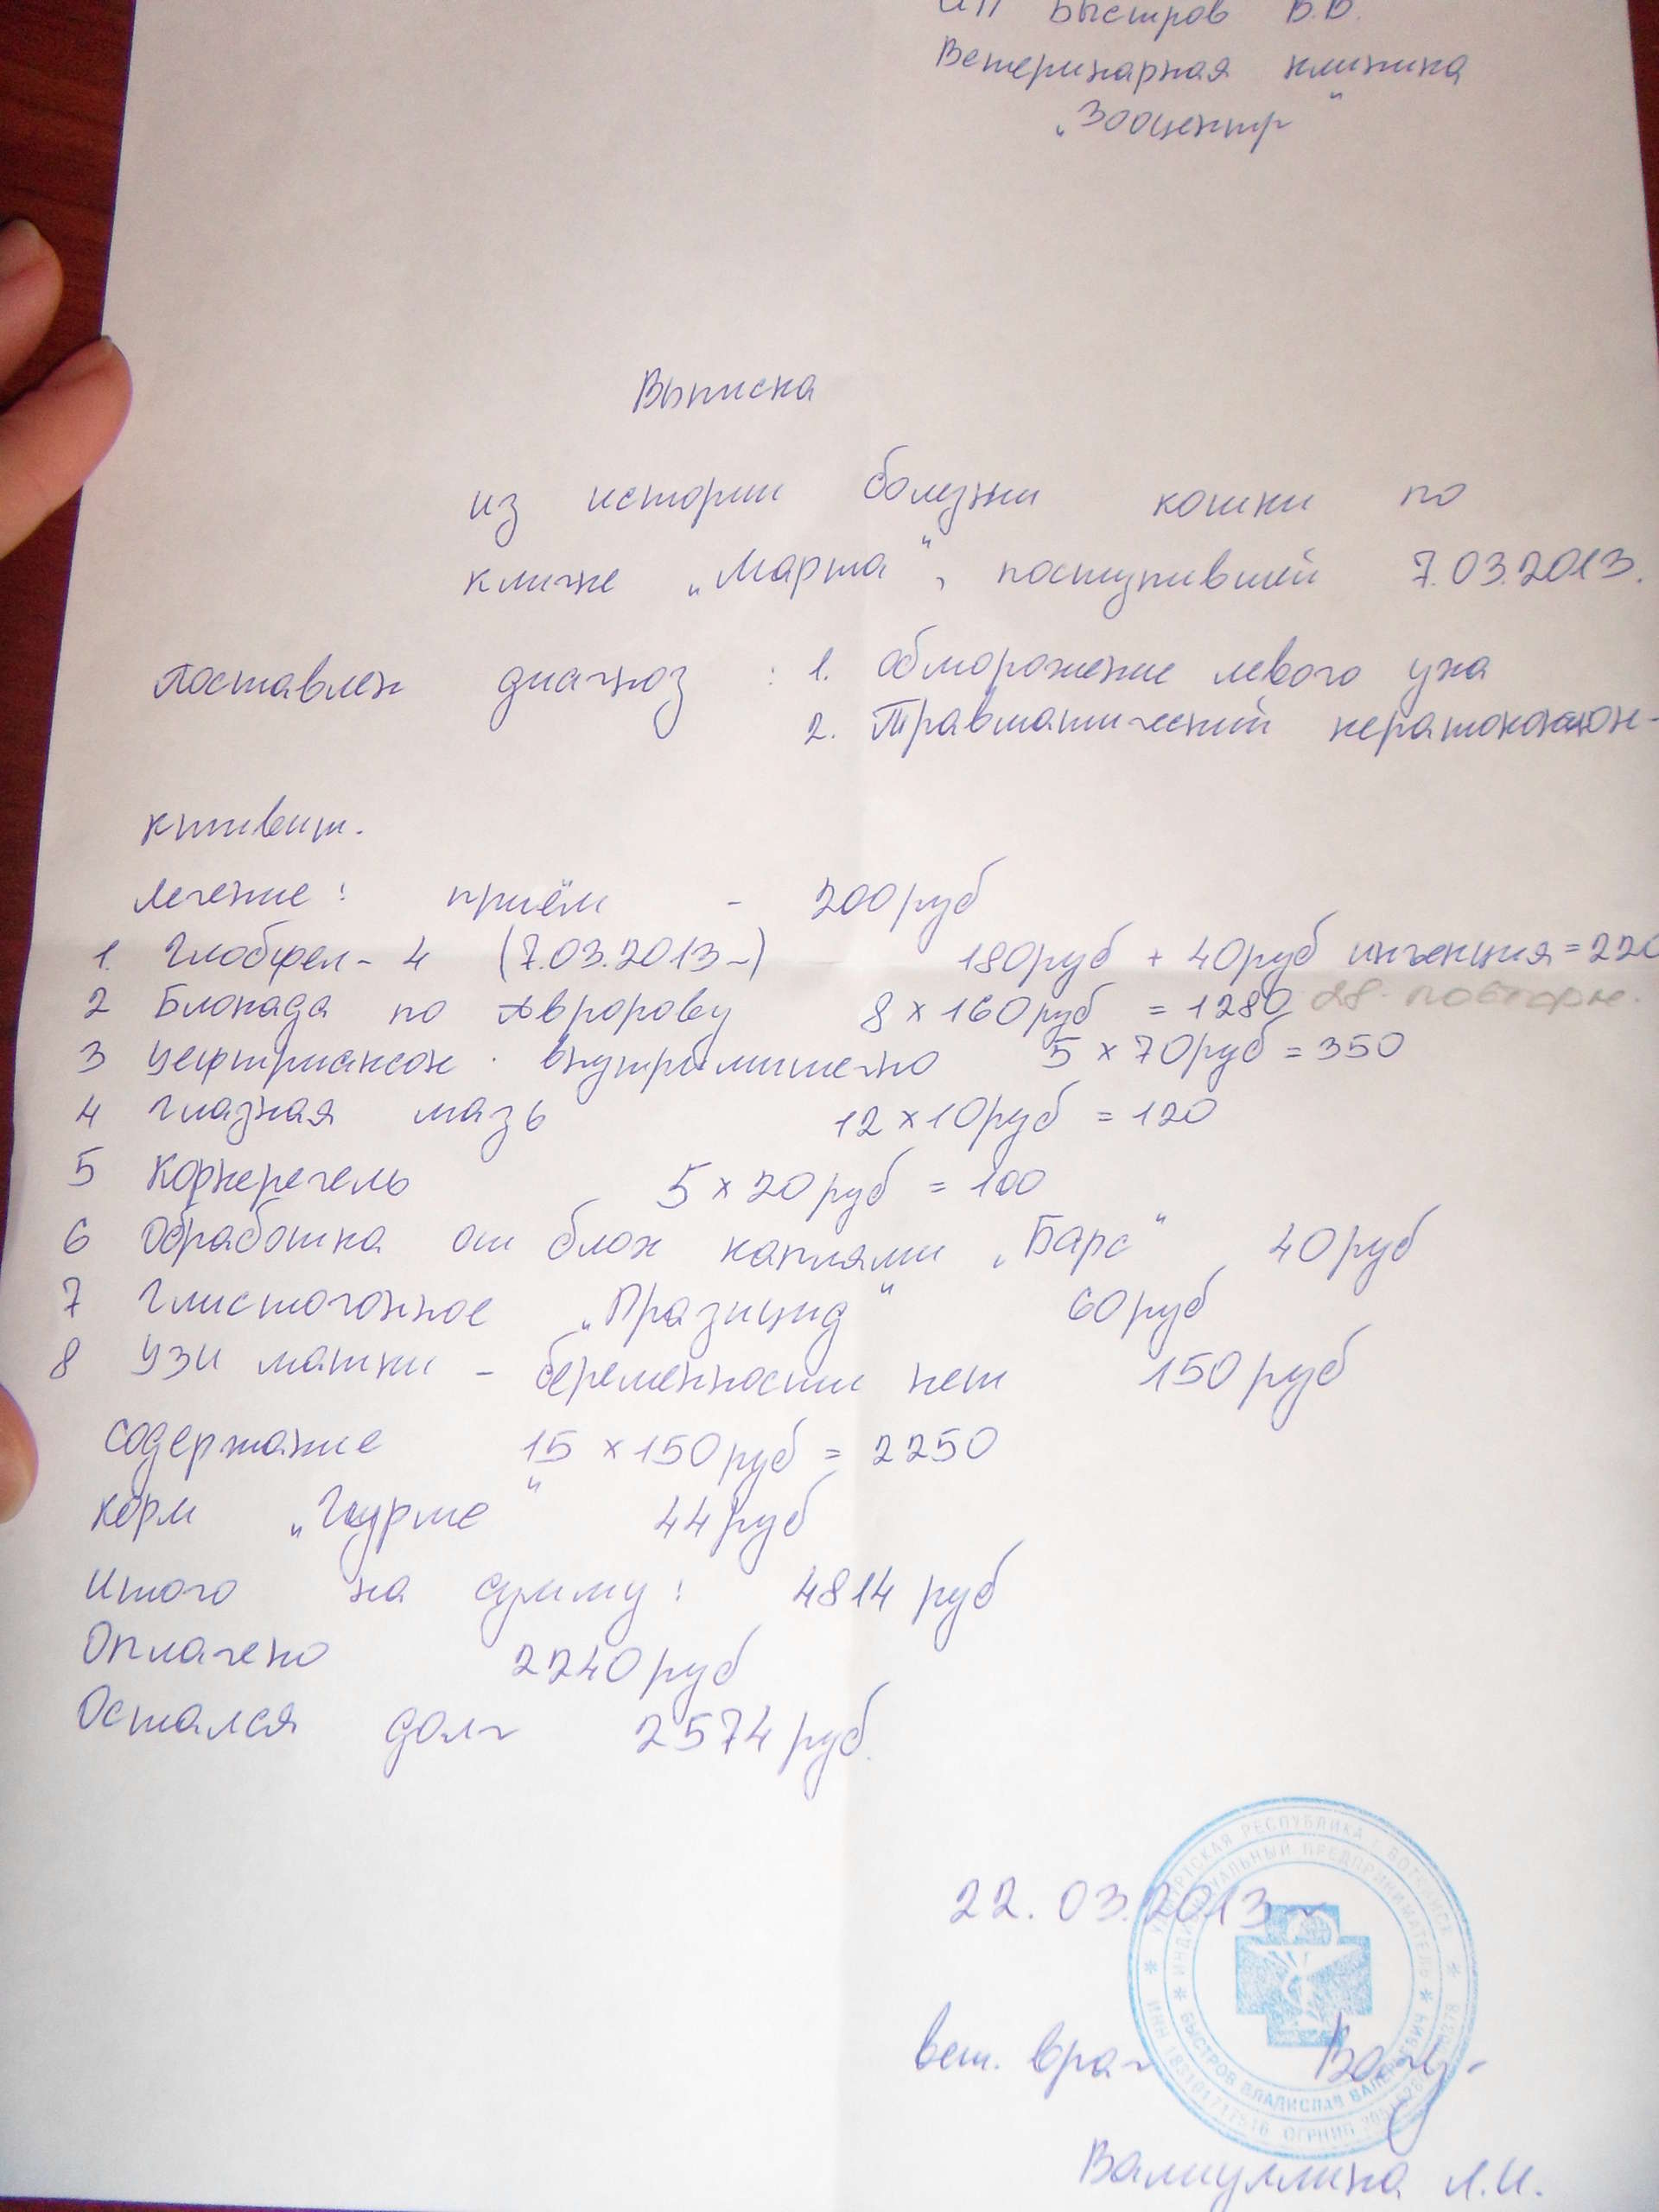 ИП Быстров В.В.
Ветеринарная клиника
„Зооцентр"
Выписка
из истории болезни кошки по
кличке „Марта", поступившей 7.03.2013.
Поставлен диагноз: 1. Обморожение левого уха
2. Травматический кератоконъюн-
ктивит.
Лечение: приём - 200 руб
1. Глобфел-4 (7.03.2013г) 180 руб + 40 руб инъекция = 220
2 Блокада по Авророву 8 × 160 руб = 1280 28- повторн.
3 Цефтриаксон внутримышечно 5 × 70 руб = 350
4 Глазная мазь 12 × 10 руб = 120
5 Корнерегель 5 × 20 руб = 100
6 Обработка от блох каплями „Барс" 40 руб
7 Глистогонное „Празицид" 60 руб
8 УЗИ матки - беременности нет 150 руб
Содержание 15 × 150 руб = 2250
Корм „Гурме" 44 руб
Итого на сумму: 4814 руб
Оплачено 2240 руб
Остался долг 2574 руб.
22.03.2013г
вет. врач
Валиуллина Л.И.
УДМУРТСКАЯ РЕСПУБЛИКА г. ВОТКИНСК
ИНДИВИДУАЛЬНЫЙ ПРЕДПРИНИМАТЕЛЬ
БЫСТРОВ ВЛАДИСЛАВ ВАЛЕРЬЕВИЧ
ИНН ОГРНИП